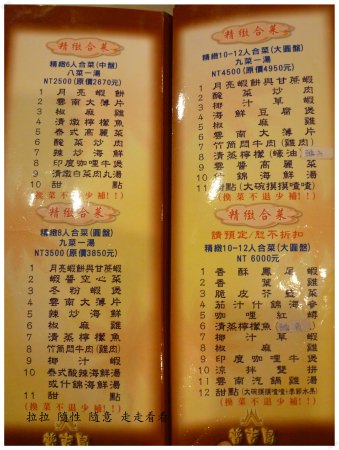 精緻合菜
精緻6人合菜(中盤)
八菜一湯
NT2500(原價2670元)
1 月亮蝦餅
2 雲南大薄片
3 椒麻雞
4 清燉檸檬魚
5 泰式高麗菜
6 醃菜炒肉
7 辣炒海鮮
8 印度咖哩牛煲
9 清燉白菜肉丸湯
10 甜點
(換菜不退少補!!)
精緻合菜
精緻8人合菜(圓盤)
九菜一湯
NT3500(原價3850元)
1 月亮蝦餅與甘蔗蝦
2 蝦醬空心菜
3 冬粉蝦煲
4 雲南大薄片
5 辣炒海鮮
6 椒麻雞
7 清蒸檸檬魚
8 竹筒悶牛肉(雞肉)
9 椰汁蝦
10 泰式酸辣海鮮湯
或什錦海鮮湯
(換菜不退少補!!)
精緻合菜
精緻10-12人合菜(大圓盤)
九菜一湯
NT4500(原價4950元)
1 月亮蝦餅與甘蔗蝦
2 醃菜炒肉
3 椰汁草蝦
4 海鮮豆腐煲
5 咖哩炒蟹
6 雲南大薄片
7 竹筒悶牛肉(雞肉)
8 清蒸檸檬(蠔油)
9 雲醬高麗菜
10 什錦海鮮湯
11 甜點(大碗摸摸喳喳)
(換菜不退少補!!)
精緻合菜
請預定/恕不折扣
精緻10-12人合菜(大圓盤)
NT 6000元
1 香酥鳳尾蝦
2 香葉雞
3 脆皮芥蘭菜
4 茄汁什錦海參
5 咖哩紅蟳
6 清蒸檸檬魚
7 椰汁草蝦
8 印度咖哩牛煲
9 涼拌雙拼
11 雲南汽鍋雞湯
12 甜點(大碗摸摸喳喳+季節水果)
(換菜不退少補!!)
拉拉 隨性 隨意 走走看看